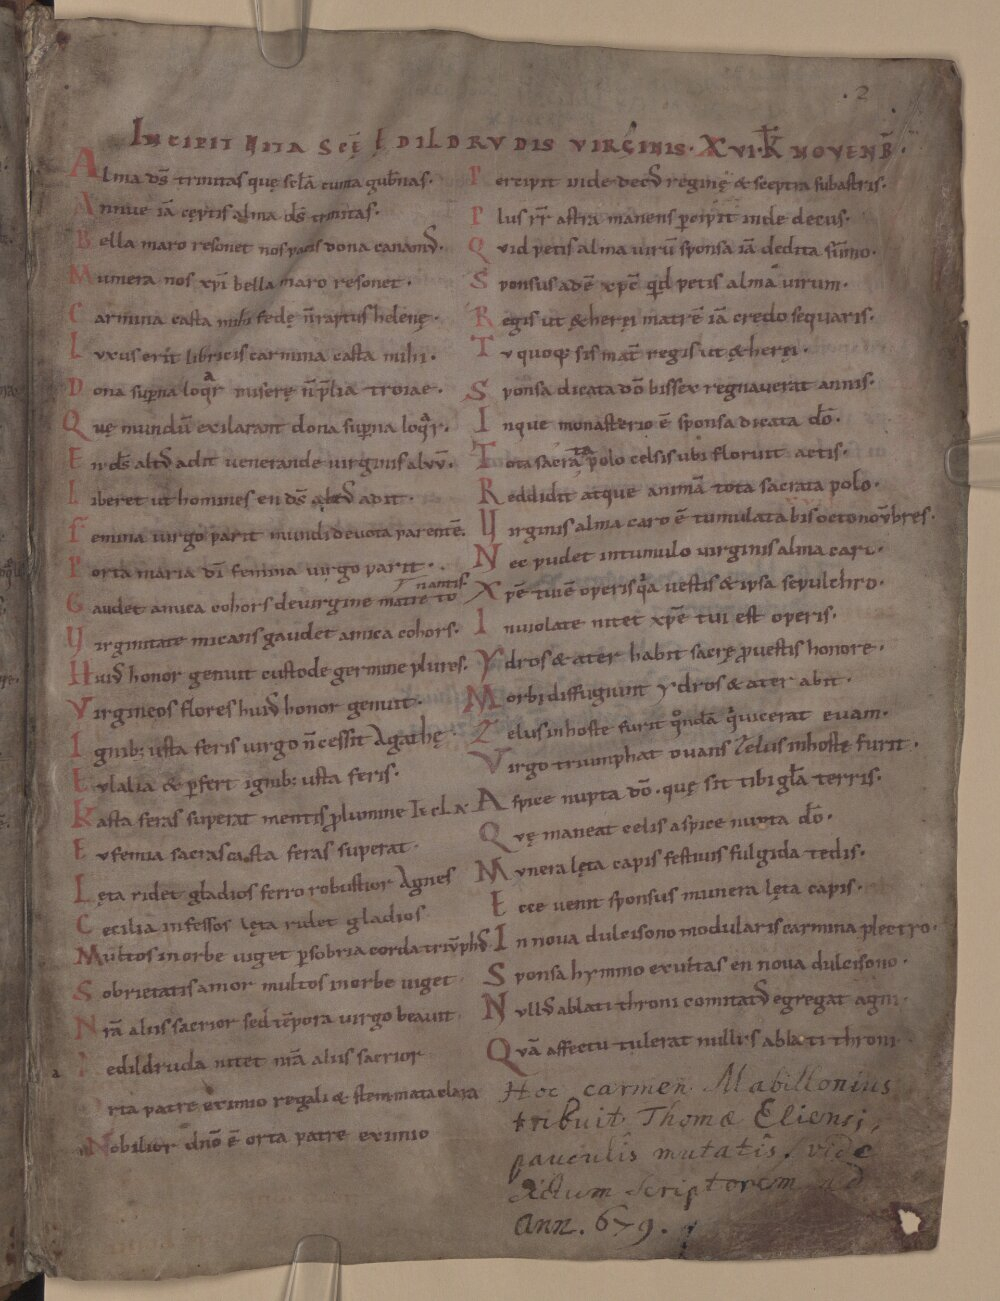 .2.
INCIPIT UITA SCĒ EDILDRUDIS VIRGINIS. XVI. K̄ NOVENB̄.
Alma ds̄ trinitas quę sc̄la cuncta gub̄nas.
Annue iā cęptis alma ds̄ trinitas.
Bella maro resonet nos pacis dona canam᷒.
Munera nos xp̄i bella maro resonet.
Carmina casta mihi fedę n̄ raptus helenę.
Luxus erit lubricis carmina casta mihi.
Dona sup̄na loqr̄ miserę n̄ p̄lia troiae.
Quę mundū exilarant dona sup̄na loqr̄.
En ds̄ alt᷒ adit uenerande uirginis aluū.
Liberet ut homines en ds̄ alt᷒ adit.
Femina uirgo parit mundi deuota parentē.
Porta maria dī femina uirgo parit.
Gaudet amica cohors de uirgine matre tonantis
Uirginitate micans gaudet amica cohors.
Hui᷒ honor genuit custode germine plures.
Virgineos flores hui᷒ honor genuit.
Ignib; usta feris uirgo n̄ cessit Agathę.
Eulalia & p̄fert ignib; usta feris.
Kasta feras superat mentis p̄ lumine Tecla
Eufemia sacras casta feras superat.
Lęta ridet gladios ferro robustior Agnes
Cecilia infessos lęta ridet gladios
Multos in orbe uiget p̄ sobria corda triūph᷒.
Sobrietatis amor multos in orbe uiget
Nrā aliis sacrior sed tēpora uirgo beauit
Aedildruda nitet nrā aliis sacrior
Orta patre eximio regali & stemmata clara
Nobilior dnō ē orta patre eximio
Percipit inde dec᷒ reginę & sceptra sub astris.
Plus sr̄ astra manens p̄cipit inde decus.
Quid petis alma uirū sponsa iā dedita sūmo.
Sponsus adē xp̄c qid petis alma uirum.
Regis ut ętherei matrē iā credo sequaris.
Tu quoq; sis mat̄ regis ut ętherei.
Sponsa dicata dō bissex regnauerat annis.
Inque monasterio ē sponsa dicata dō.
Tota sacrata polo celsis ubi floruit actis.
Reddidit atque animā tota sacrata polo.
Uirginis alma caro ē tumulata bis octo nouēbres.
Nec pudet in tumulo uirginis alma caro.
Xp̄e tui ē operis qa uestis & ipsa sepulchro.
Inuiolate nitet xp̄e tui est operis.
Ydros & ater habit sacrę p̄ uestis honore.
Morbi diffugiunt ydros & ater abit.
Zelus in hoste furit qondā qi uicerat euam.
Virgo triumphat ouans zelus in hoste furit.
Aspice nupta dō. quę sit tibi glā terris.
Quę maneat celis aspice nupta dō.
Munera lęta capis festiuis fulgida tedis.
Ecce uenit sponsus munera lęta capis.
In noua dulcisono modularis carmina plectro.
Sponsa hymno exultas en noua dulcisono.
Null᷒ ablati throni comitat᷒ egregat agni.
Quā affectu tulerat nullus ablati throni
Hoc carmen Mabillonius
tribuit Thomæ Eliensi,
pauculis mutatis. vide
dictum Scriptorem ad
Ann. 679.